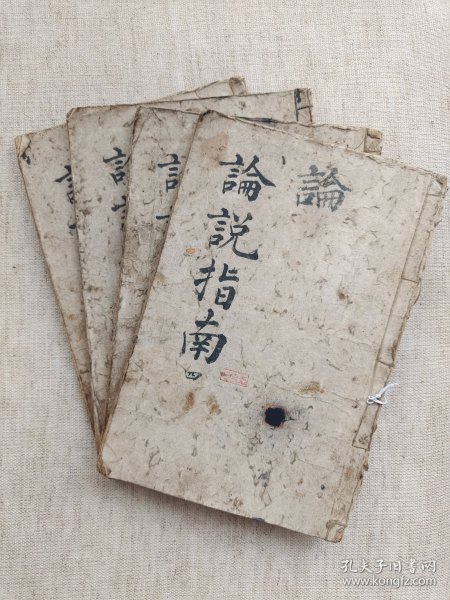 論
論說指南
四
論說
論說
論
孔夫子旧书网
www.kongfz.com